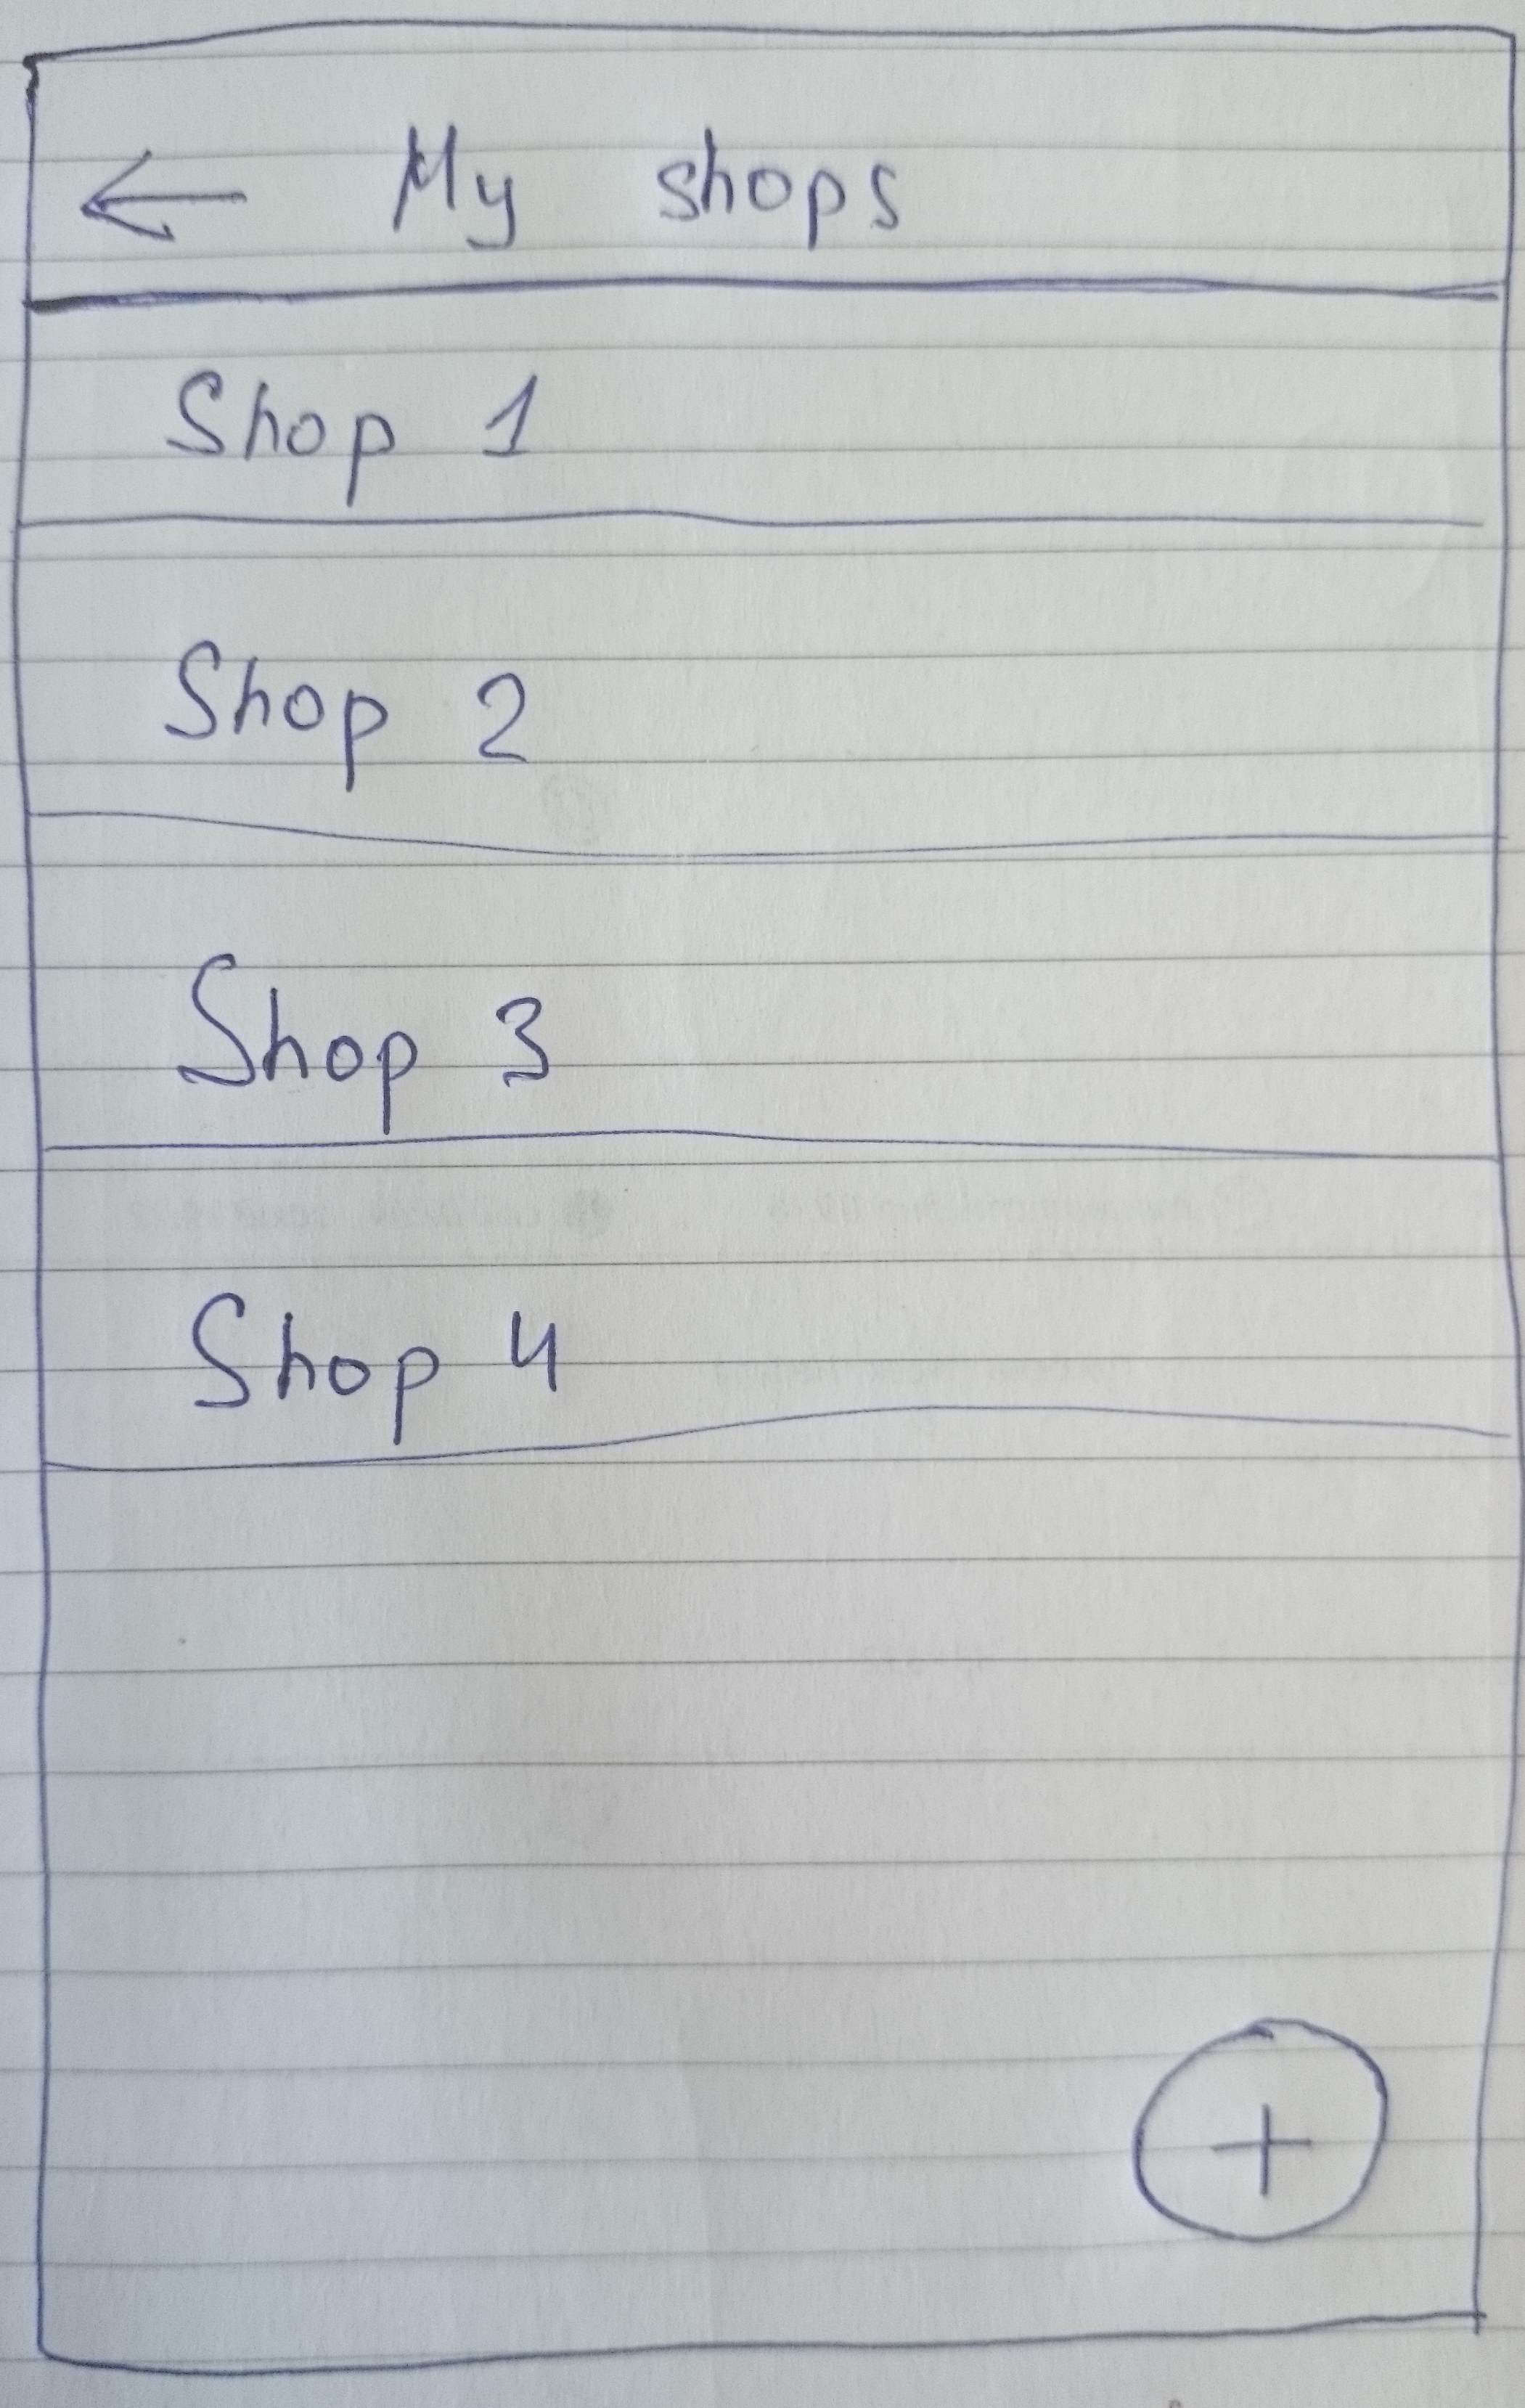 ← My shops
Shop 1
Shop 2
Shop 3
Shop 4
+